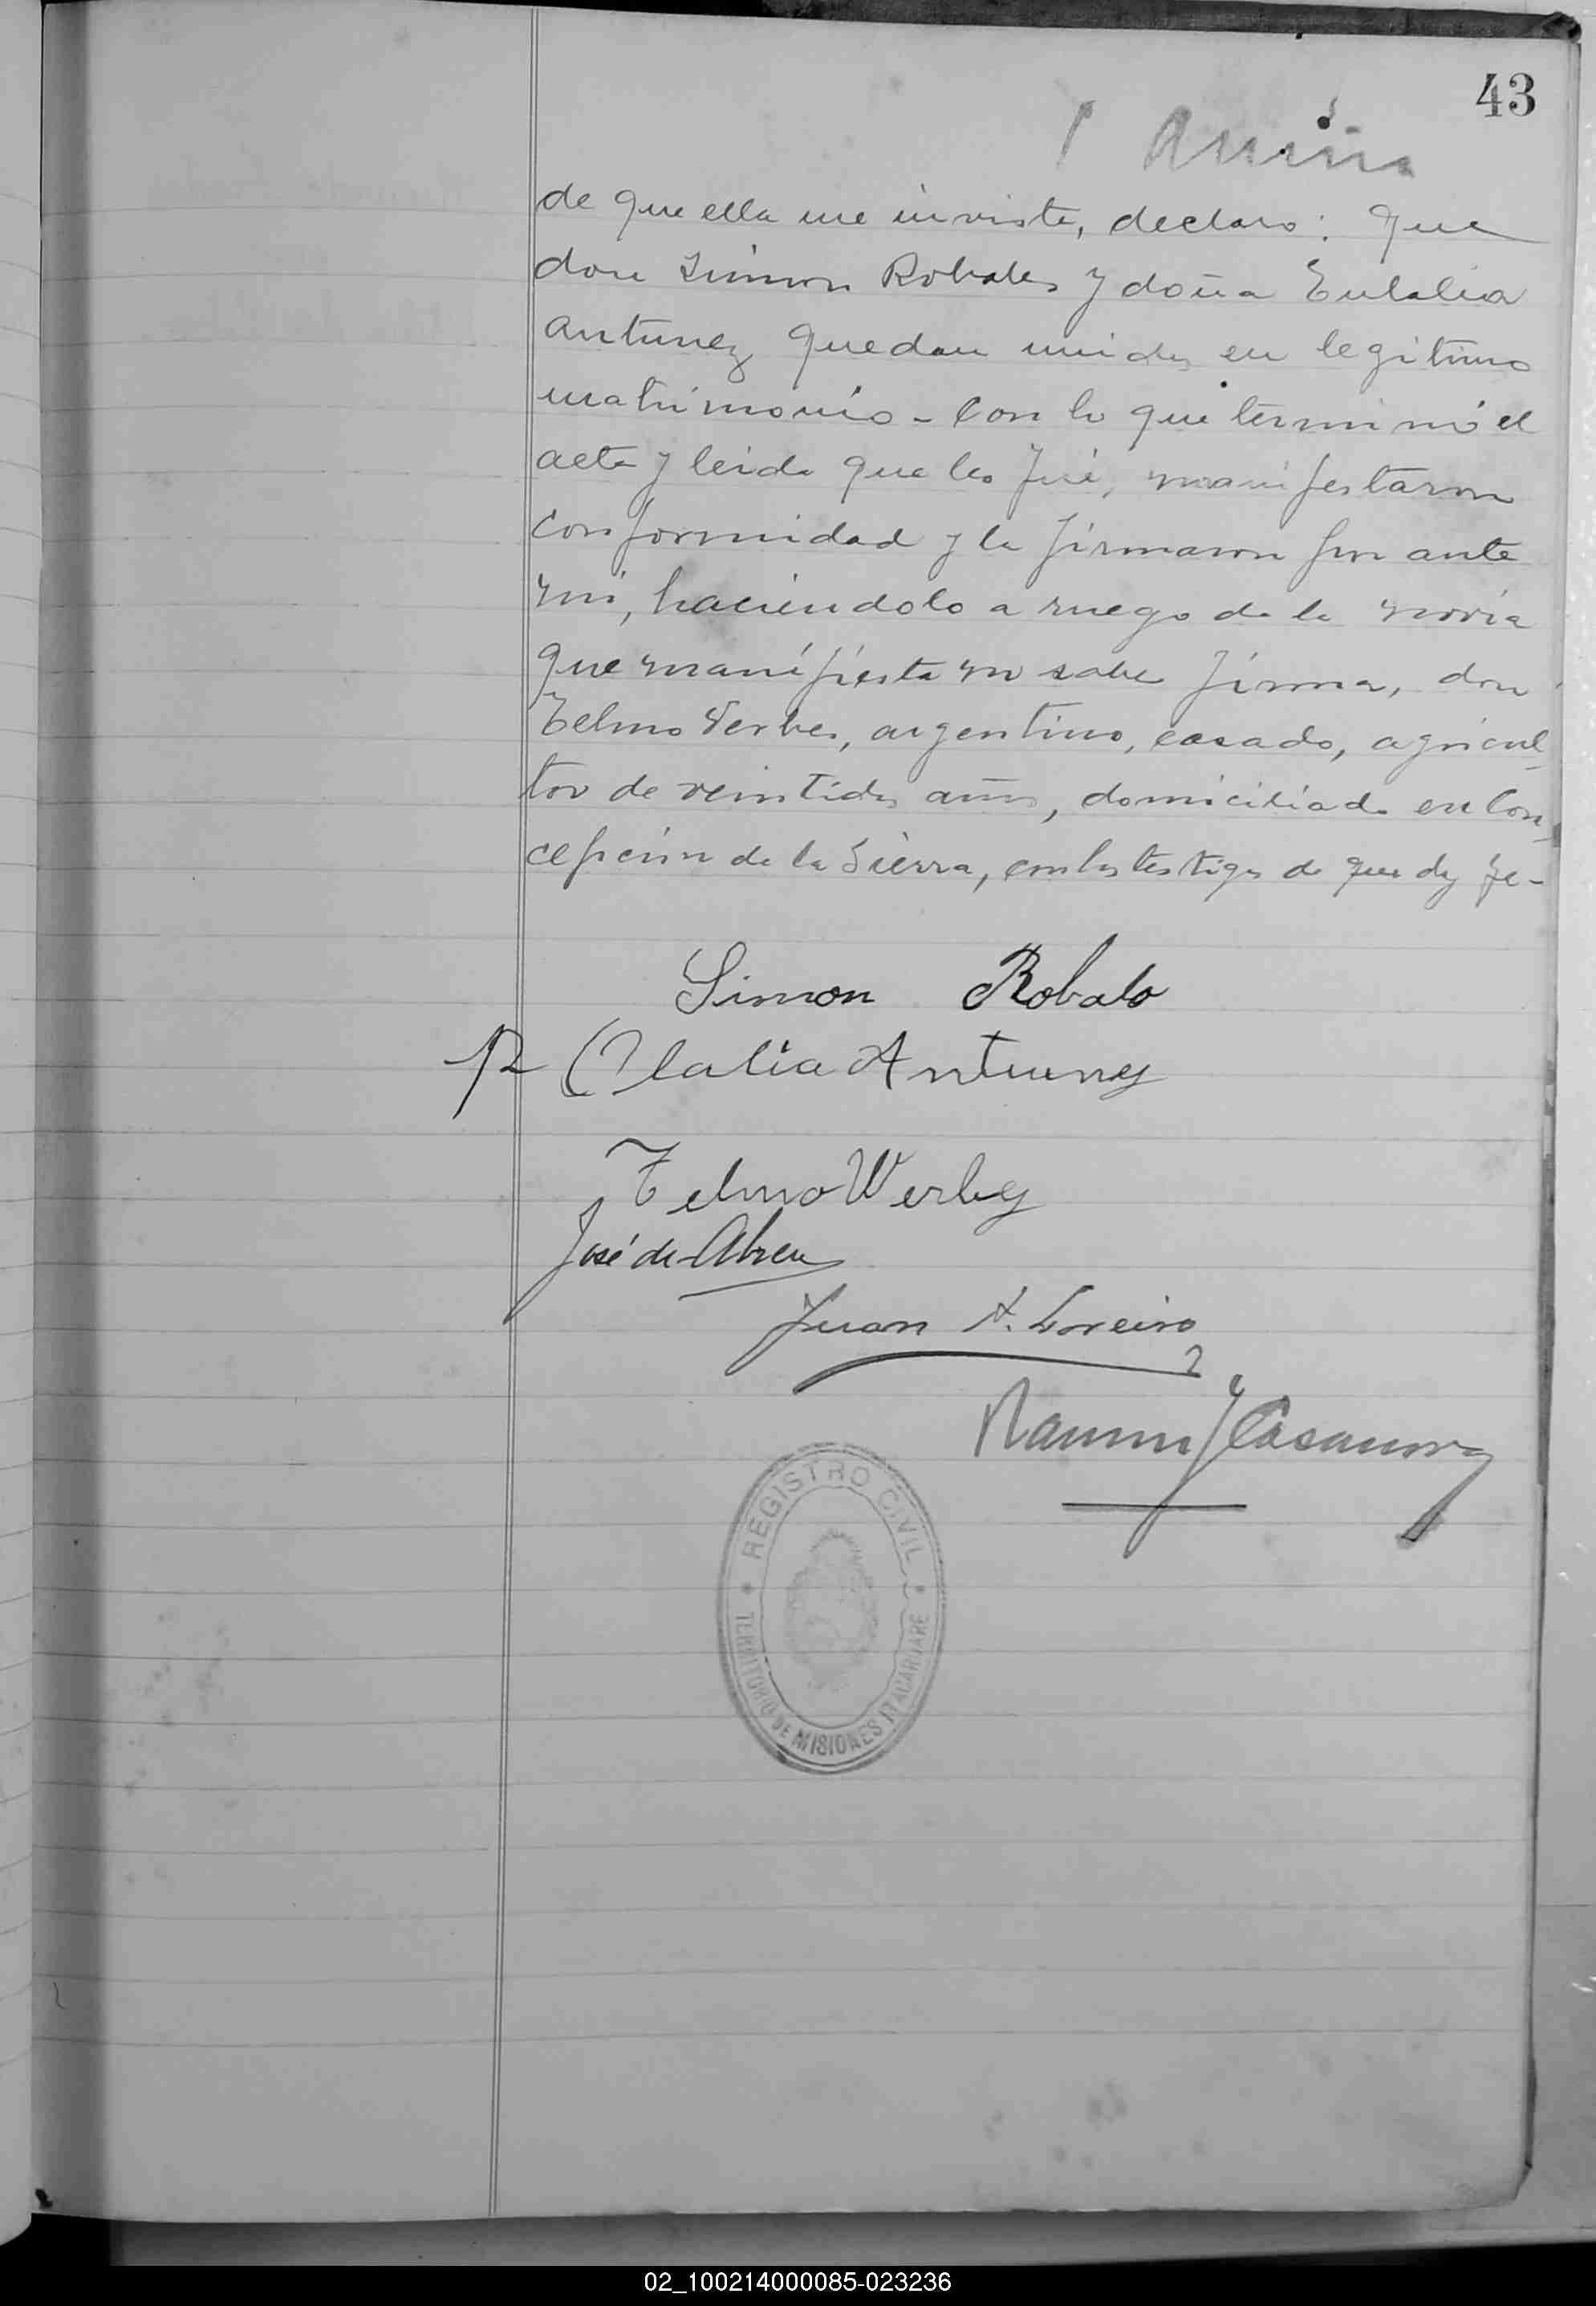 43
de que ella me inviste, declaro: que
don Simon Robalo y doña Eulalia
Antunez quedan unidos en legitimo
matrimonio - Con lo que terminó el
acta y leida que les fué, manifestaron
conformidad y la firmaron por ante
mi, haciendolo a ruego de la novia
que manifiesta no saber firmar, don
Telmo Verbes, argentino, casado, agricul-
tor de veintidos años, domiciliado en Con-
cepción de la Sierra, con los testigos de que doy fe-
Simon Robalo
Olalia Antunez
Telmo Werbes
José de Abreu
Juan A. Loreiro
Ramon J Casanova
REGISTRO CIVIL
TERRITORIO DE MISIONES ITACARUARE
02_100214000085-023236